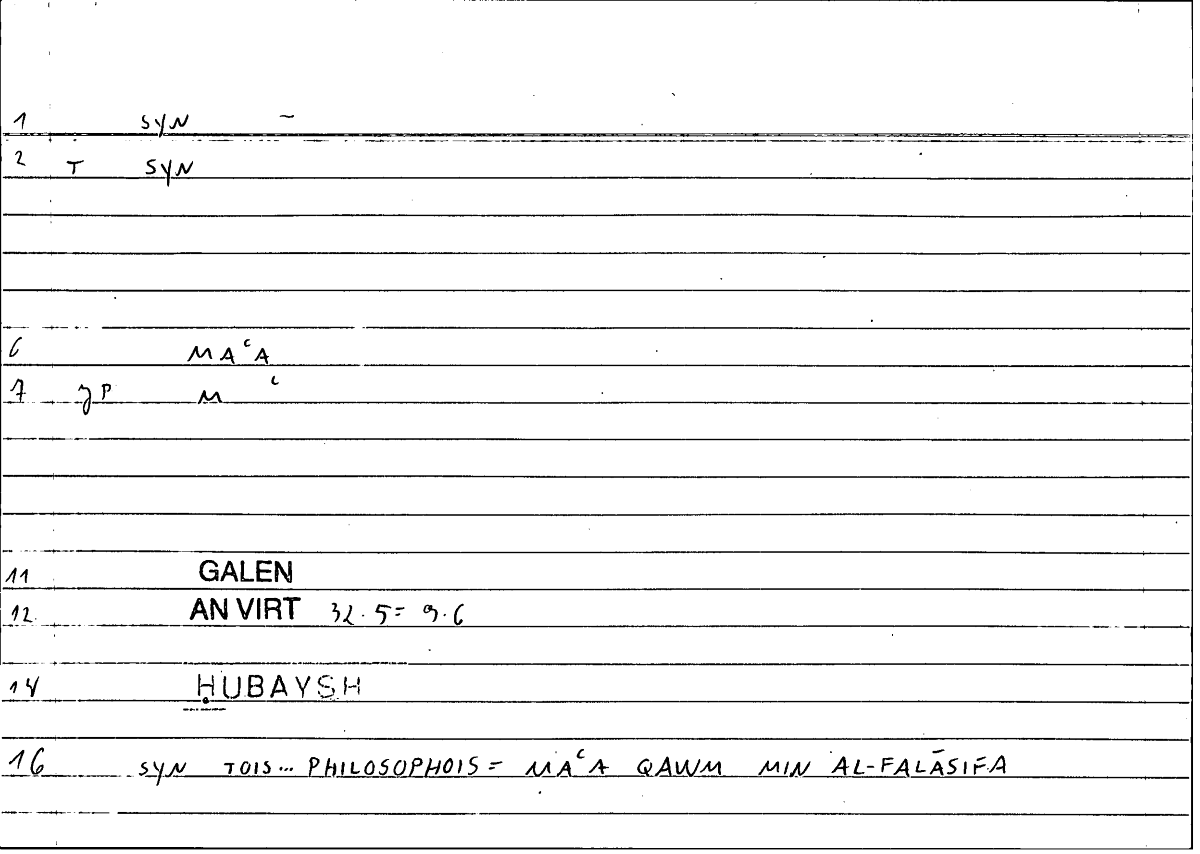 1 SYN ~
2 T SYN
6 MAʿA
7 P M ʿ
11 GALEN
12 AN VIRT 32.5 = 9.6
14 ḤUBAYSH
16 SYN TOIS... PHILOSOPHOIS = MAʿA QAWM MIN AL-FALĀSIFA